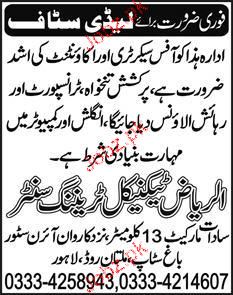 فوری ضرورت برائے لیڈی سٹاف
ادارہ ہذا کو آفس سیکرٹری اور اکاؤنٹنٹ کی اشد
ضرورت ہے، پرکشش تنخواہ، ٹرانسپورٹ اور
رہائش الاؤنس دیا جائیگا، انگلش اور کمپیوٹر میں
مہارت بنیادی شرط ہے۔
الریاض ٹیکنیکل ٹریننگ سنٹر
سادات مارکیٹ 13 کلومیٹر، نزد کاروان آئرن سٹور
باغ سٹاپ ملتان روڈ، لاہور
0333-4258943, 0333-4214607